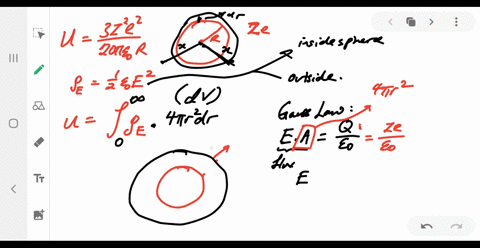 U = 3Z²e² / 20πε₀R
dr
R
x
x
Ze
inside sphere
outside.
ρ_E = ½ε₀E²
(dV)
U = ∫₀^∞ ρ_E · 4πr²dr
4πr²
Gauss Law:
E.A = Q/ε₀ = Ze/ε₀
flux
E